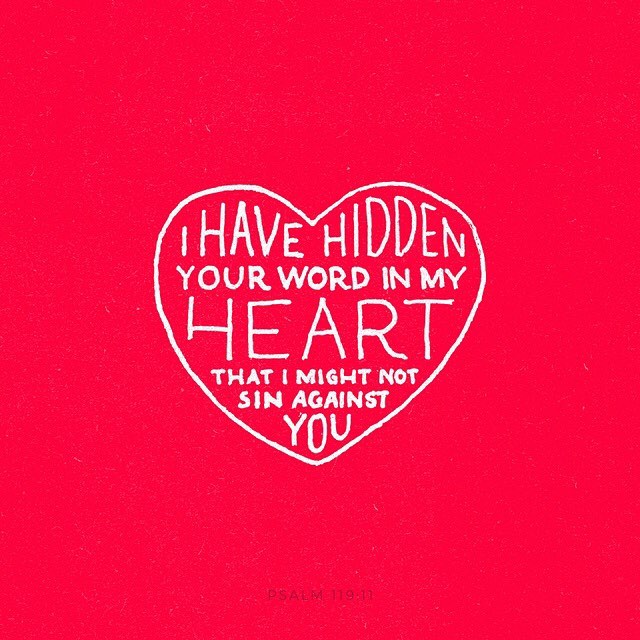 I HAVE HIDDEN
YOUR WORD IN MY
HEART
THAT I MIGHT NOT
SIN AGAINST
YOU
PSALM 119:11